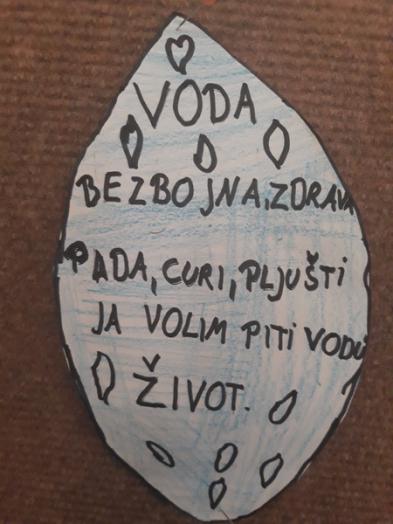 VODA
BEZBOJNA, ZDRAVA
PADA, CURI, PLJUŠTI
JA VOLIM PITI VODU
ŽIVOT.